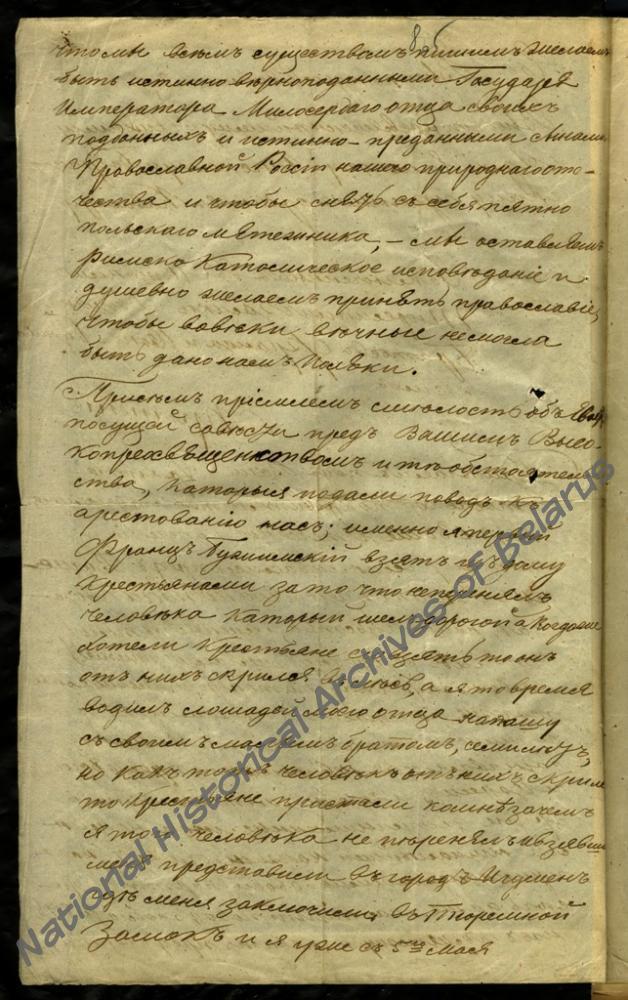 что мы всѣмъ существомъ нашимъ желаемъ
быть истинно вѣрноподанными Государя
Императора Милосердаго отца своихъ
подданныхъ и истинно-преданными сынами
Православной Россіи нашего природнаго оте-
чества и чтобы снять съ себя пятно
польскаго мятежника, - мы оставляемъ
римско католическое исповѣданіе и
душевно желаемъ принять православіе,
чтобы вовѣки вѣчные не могла
быть дано намъ
Присемъ пріемлемъ смѣлость объ
по сущей совѣсти предъ Вашимъ Высо-
копреосвященствомъ и тѣ обстоятель-
ства, которыя подали поводъ къ
арестованію насъ; именно я первый
Францъ взятъ изъ дому
крестьянами за то что не перенялъ
человѣка каторый шелъ дорогой а когда же
хотели крестьяне взять то онъ
отъ нихъ скрылся въ лѣсъ, а я то время
водилъ лошадей моего отца на пашу
съ своимъ малымъ братомъ, семи лѣтъ,
но какъ тотъ человѣкъ отъ нихъ скрылся
то крестьяне пристали ко мнѣ зачемъ
я того человѣка не перенялъ и взявши
меня представили въ городъ Игуменъ
гдѣ меня заключили въ Тюремной
Замокъ и я уже съ 5го Мая
National Historical Archives of Belarus